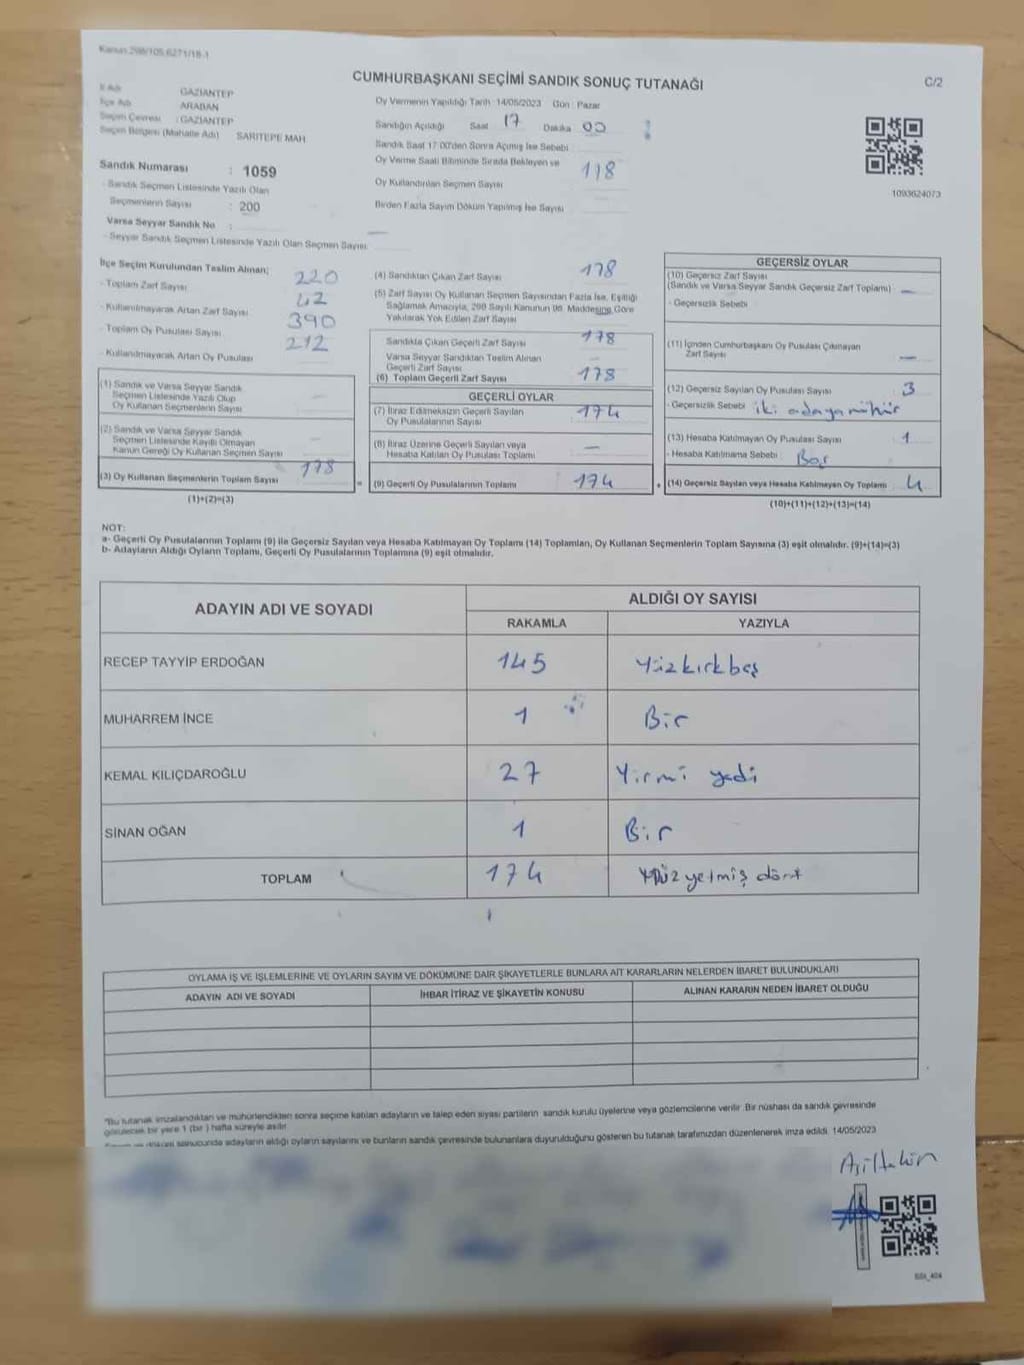 Kanun:298/105,6271/18-1
CUMHURBAŞKANI SEÇİMİ SANDIK SONUÇ TUTANAĞI
C/2
İl Adı GAZIANTEP
İlçe Adı ARABAN
Seçim Çevresi : GAZIANTEP
Seçim Bölgesi (Mahalle Adı) SARITEPE MAH
Sandık Numarası : 1059
- Sandık Seçmen Listesinde Yazılı Olan
Seçmenlerin Sayısı : 200
Varsa Seyyar Sandık No :
- Seyyar Sandık Seçmen Listesinde Yazılı Olan Seçmen Sayısı:
Oy Vermenin Yapıldığı Tarih :14/05/2023 Gün : Pazar
Sandığın Açıldığı Saat 17 Dakika 00
Sandık Saat 17:00'den Sonra Açımış İse Sebebi
Oy Verme Saati Bitiminde Sırada Bekleyen ve 118
Oy Kullandırılan Seçmen Sayısı
Birden Fazla Sayım Döküm Yapılmış İse Sayısı
1093624073
İlçe Seçim Kurulundan Teslim Alınan;
- Toplam Zarf Sayısı 220
- Kullanılmayarak Artan Zarf Sayısı 42
- Toplam Oy Pusulası Sayısı 390
- Kullanılmayarak Artan Oy Pusulası 212
(1) Sandık ve Varsa Seyyar Sandık
Seçmen Listesinde Yazılı Olup
Oy Kullanan Seçmenlerin Sayısı
(2) Sandık ve Varsa Seyyar Sandık
Seçmen Listesinde Kayıtlı Olmayan
Kanun Gereği Oy Kullanan Seçmen Sayısı
(3) Oy Kullanan Seçmenlerin Toplam Sayısı 178
(1)+(2)=(3)
(4) Sandıktan Çıkan Zarf Sayısı 178
(5) Zarf Sayısı Oy Kullanan Seçmen Sayısından Fazla İse, Eşitliği
Sağlamak Amacıyla, 298 Sayılı Kanunun 98. Maddesine Göre
Yakılarak Yok Edilen Zarf Sayısı
Sandıkta Çıkan Geçerli Zarf Sayısı 178
Varsa Seyyar Sandıktan Teslim Alınan
Geçerli Zarf Sayısı
(6) Toplam Geçerli Zarf Sayısı 178
GEÇERLİ OYLAR
(7) İtiraz Edilmeksizin Geçerli Sayılan
Oy Pusulalarının Sayısı 174
(8) İtiraz Üzerine Geçerli Sayılan veya
Hesaba Katılan Oy Pusulası Toplamı —
= (9) Geçerli Oy Pusulalarının Toplamı 174 +
GEÇERSİZ OYLAR
(10) Geçersiz Zarf Sayısı
(Sandık ve Varsa Seyyar Sandık Geçersiz Zarf Toplamı) —
- Geçersizlik Sebebi
(11) İçinden Cumhurbaşkanı Oy Pusulası Çıkmayan
Zarf Sayısı —
(12) Geçersiz Sayılan Oy Pusulası Sayısı 3
- Geçersizlik Sebebi iki adaya mühür
(13) Hesaba Katılmayan Oy Pusulası Sayısı 1
- Hesaba Katılmama Sebebi Boş
(14) Geçersiz Sayılan veya Hesaba Katılmayan Oy Toplamı 4
(10)+(11)+(12)+(13)=(14)
NOT:
a- Geçerli Oy Pusulalarının Toplamı (9) ile Geçersiz Sayılan veya Hesaba Katılmayan Oy Toplamı (14) Toplamları, Oy Kullanan Seçmenlerin Toplam Sayısına (3) eşit olmalıdır. (9)+(14)=(3)
b- Adayların Aldığı Oyların Toplamı, Geçerli Oy Pusulalarının Toplamına (9) eşit olmalıdır.
ADAYIN ADI VE SOYADI
ALDIĞI OY SAYISI
RAKAMLA YAZIYLA
RECEP TAYYİP ERDOĞAN 145 Yüzkırkbeş
MUHARREM İNCE 1 Bir
KEMAL KILIÇDAROĞLU 27 Yirmi yedi
SİNAN OĞAN 1 Bir
TOPLAM 174 Yüz yetmiş dört
OYLAMA İŞ VE İŞLEMLERINE VE OYLARIN SAYIM VE DÖKÜMÜNE DAİR ŞİKAYETLERLE BUNLARA AİT KARARLARIN NELERDEN İBARET BULUNDUKLARI
ADAYIN ADI VE SOYADI İHBAR İTİRAZ VE ŞİKAYETİN KONUSU ALINAN KARARIN NEDEN İBARET OLDUĞU
*Bu tutanak imzalandıktan ve mühürlendikten sonra seçime katılan adayların ve talep eden siyasi partilerin sandık kurulu üyelerine veya gözlemcilerine verilir. Bir nüshası da sandık çevresinde
görülecek bir yere 1 (bir ) hafta süreyle asılır.
sonucunda adayların aldığı oyların sayılarını ve bunların sandık çevresinde bulunanlara duyurulduğunu gösteren bu tutanak tarafımızdan düzenlenerek imza edildi. 14/05/2023